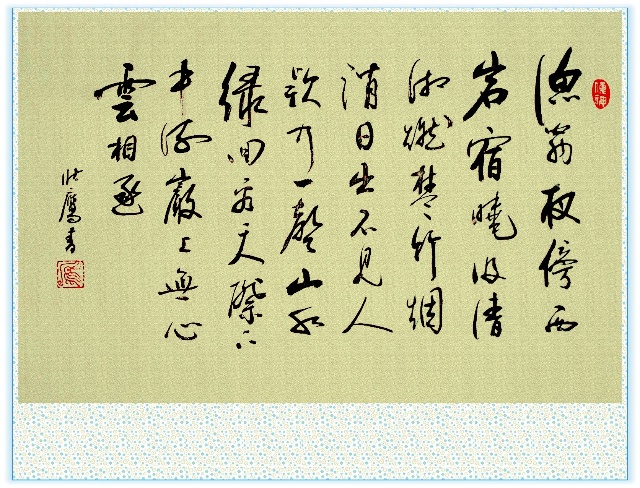 漁翁夜傍西
岩宿曉汲清
湘燃楚竹烟
消日出不見人
欸乃一聲山水
緑回看天際下
中流巖上無心
雲相逐
鷹書